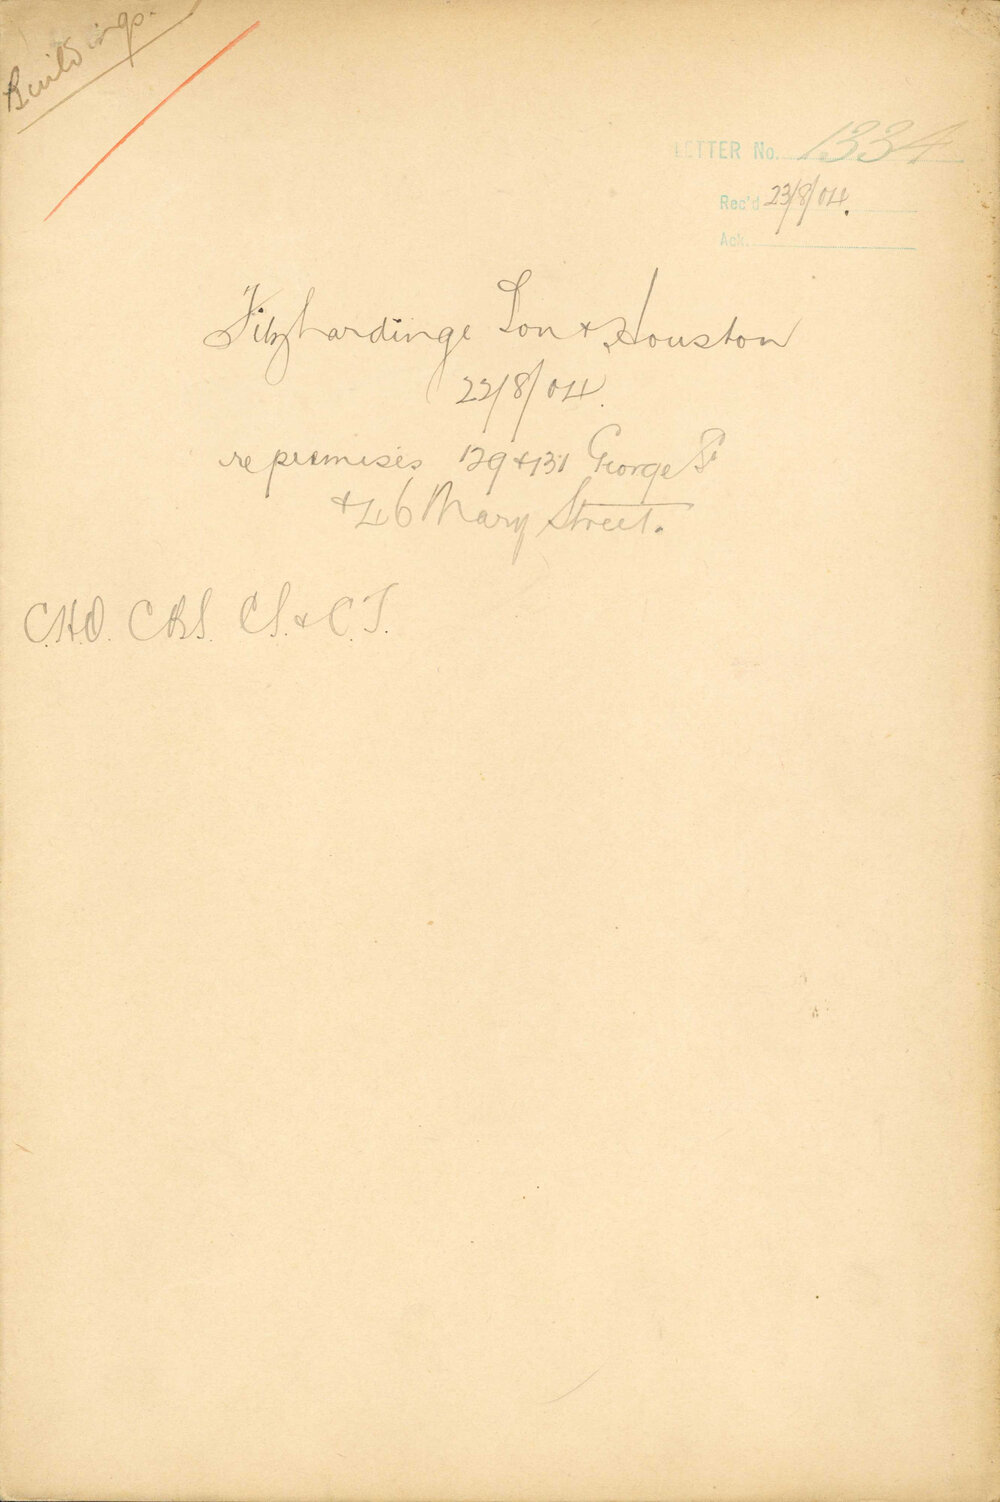 Buildings.
LETTER No. 1334
Rec'd 23/8/04.
Ack.
Fitzhardinge Son & Houston
22/8/04.
re premises 129 & 131 George St
& 46 Mary Street.
C.H.O. C.B.S. C.S. & C.T.